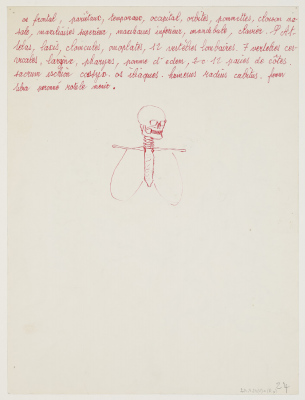 os frontal, pariétaux, temporaux, occipital, orbites, pommettes, cloison na-
sale, maxillaires supérieur, maxillaires inférieur, mandibule, clavier.
axis, clavicules, omoplates, 12 vertèbres lombaires. 7 vertèbres cer-
vicales, larynx, pharynx, pomme d'adam, 12 paires de côtes.
sacrum coccyx. os iliaques. humérus radius cubitus. fémur
tibia péroné rotule
27